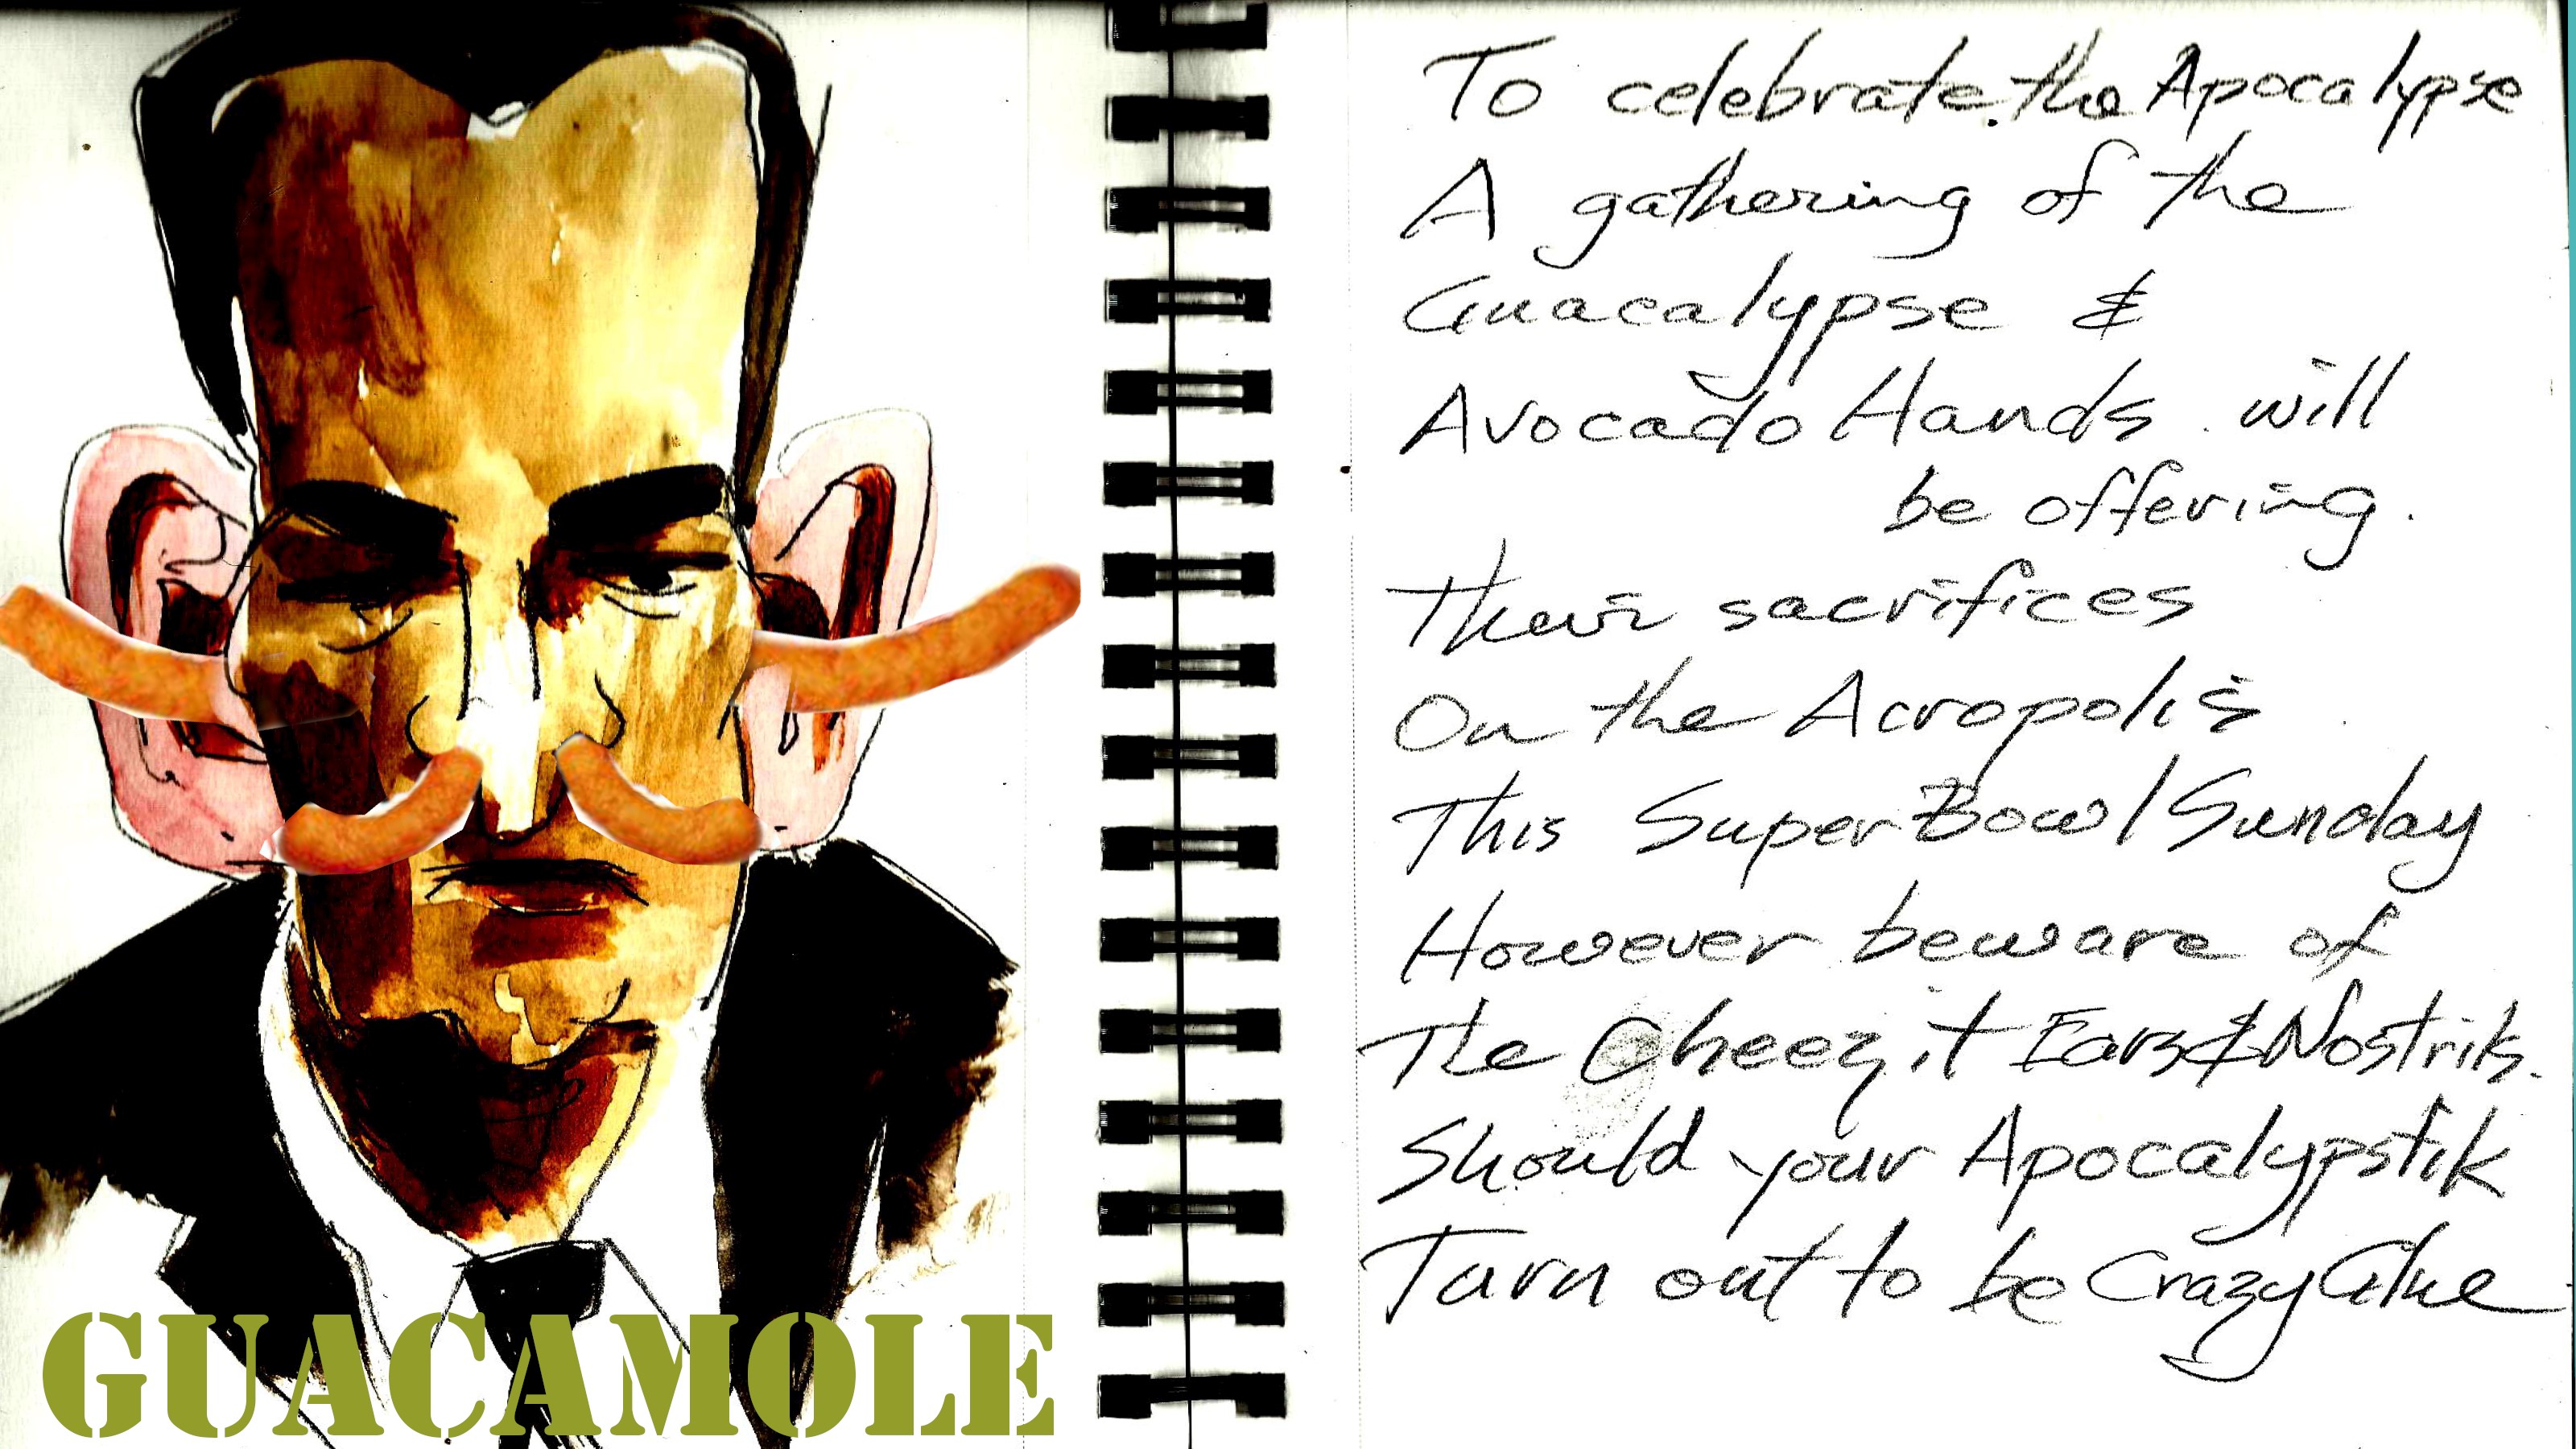 GUACAMOLE
To celebrate the Apocalypse
A gathering of the
Guacalypse &
Avocado Hands will
be offering.
Their sacrifices
On the Acropolis
This Super Bowl Sunday
However beware of
The Cheez it Ears & Nostrils.
Should your Apocalypstik
Turn out to be Crazy Glue